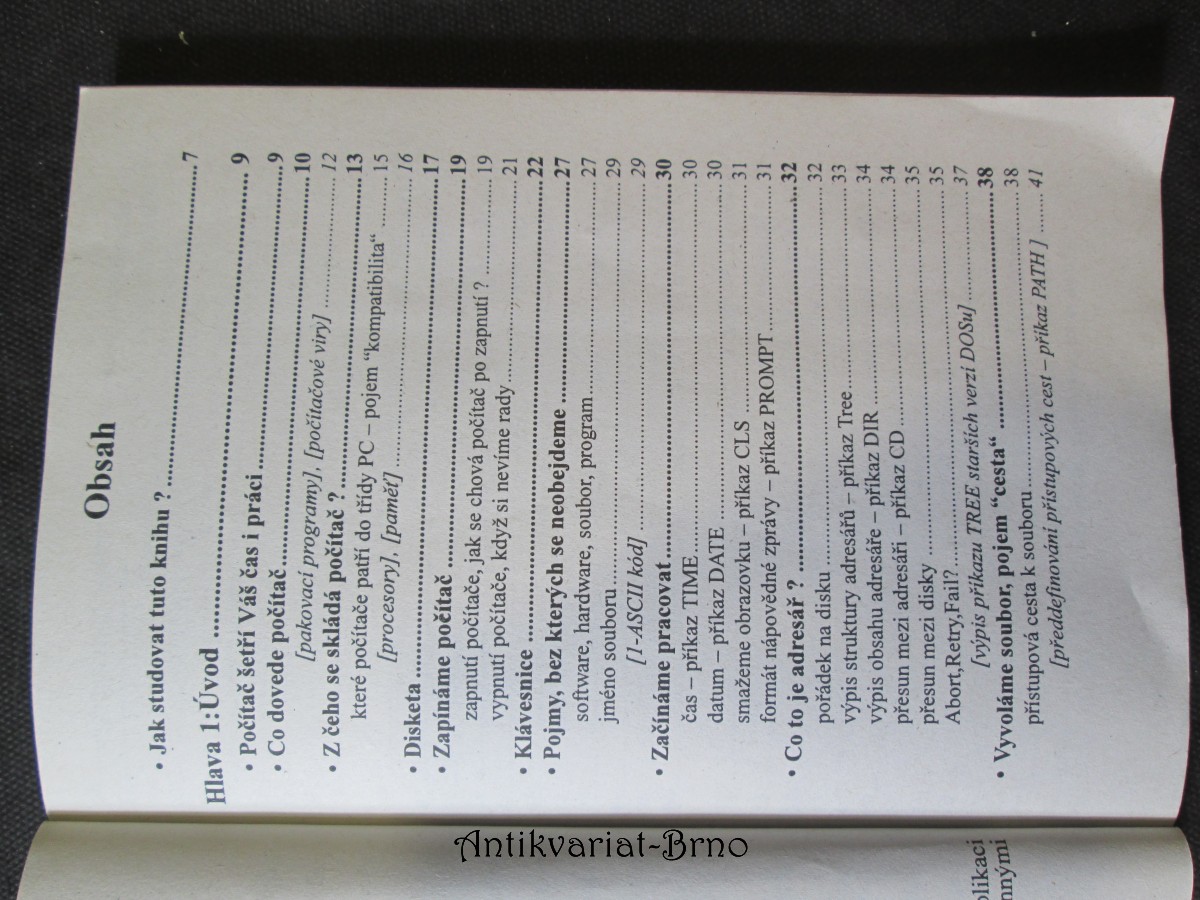 Obsah
• Jak studovat tuto knihu ?..................................................7
Hlava 1:Úvod ..................................................9
• Počítač šetří Váš čas i práci..................................................9
• Co dovede počítač..................................................10
[pakovací programy], [počítačové viry]..................................................12
• Z čeho se skládá počítač ?..................................................13
které počítače patří do třídy PC – pojem “kompatibilita“ ..........15
[procesory], [paměť]..................................................16
• Disketa..................................................17
• Zapínáme počítač ..................................................19
zapnutí počítače, jak se chová počítač po zapnutí ?..........19
vypnutí počítače, když si nevíme rady..........21
• Klávesnice ..................................................22
• Pojmy, bez kterých se neobejdeme ..................................................27
software, hardware, soubor, program..........27
jméno souboru..................................................29
[1-ASCII kód]..................................................29
• Začínáme pracovat..................................................30
čas – příkaz TIME..................................................30
datum – příkaz DATE ..................................................30
smažeme obrazovku – příkaz CLS..........31
formát nápovědné zprávy – příkaz PROMPT..........31
• Co to je adresář ?..................................................32
pořádek na disku..................................................32
výpis struktury adresářů – příkaz Tree..........33
výpis obsahu adresáře – příkaz DIR..........34
přesun mezi adresáři – příkaz CD..........34
přesun mezi disky..................................................35
Abort,Retry,Fail?..................................................35
[výpis příkazu TREE starších verzí DOSu]..........37
• Vyvoláme soubor, pojem “cesta“ ..................................................38
přístupová cesta k souboru..................................................38
[předdefinování přístupových cest – příkaz PATH ]..........41
plikaci
nnými
Antikvariat-Brno